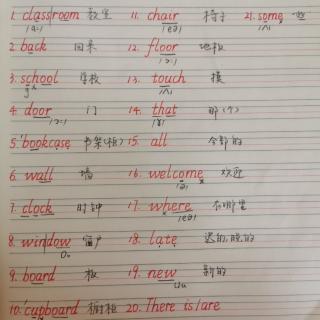 1. classroom 教室 11. chair 椅子 21. some 一些
/aː/ /eə/ /ʌ/
2. back 回来 12. floor 地板
/ɔː/
3. school 学校 13. touch 摸
/ʌ/
4. door 门 14. that 那(个)
/ɔː/
5. bookcase 书架(柜) 15. all 全部的
6. wall 墙 16. welcome 欢迎
/ə/
7. clock 时钟 17. where 在哪里
/eə/
8. window 窗户 18. late 迟的,晚的
9. board 板 19. new 新的
10. cupboard 橱柜 20. There is/are